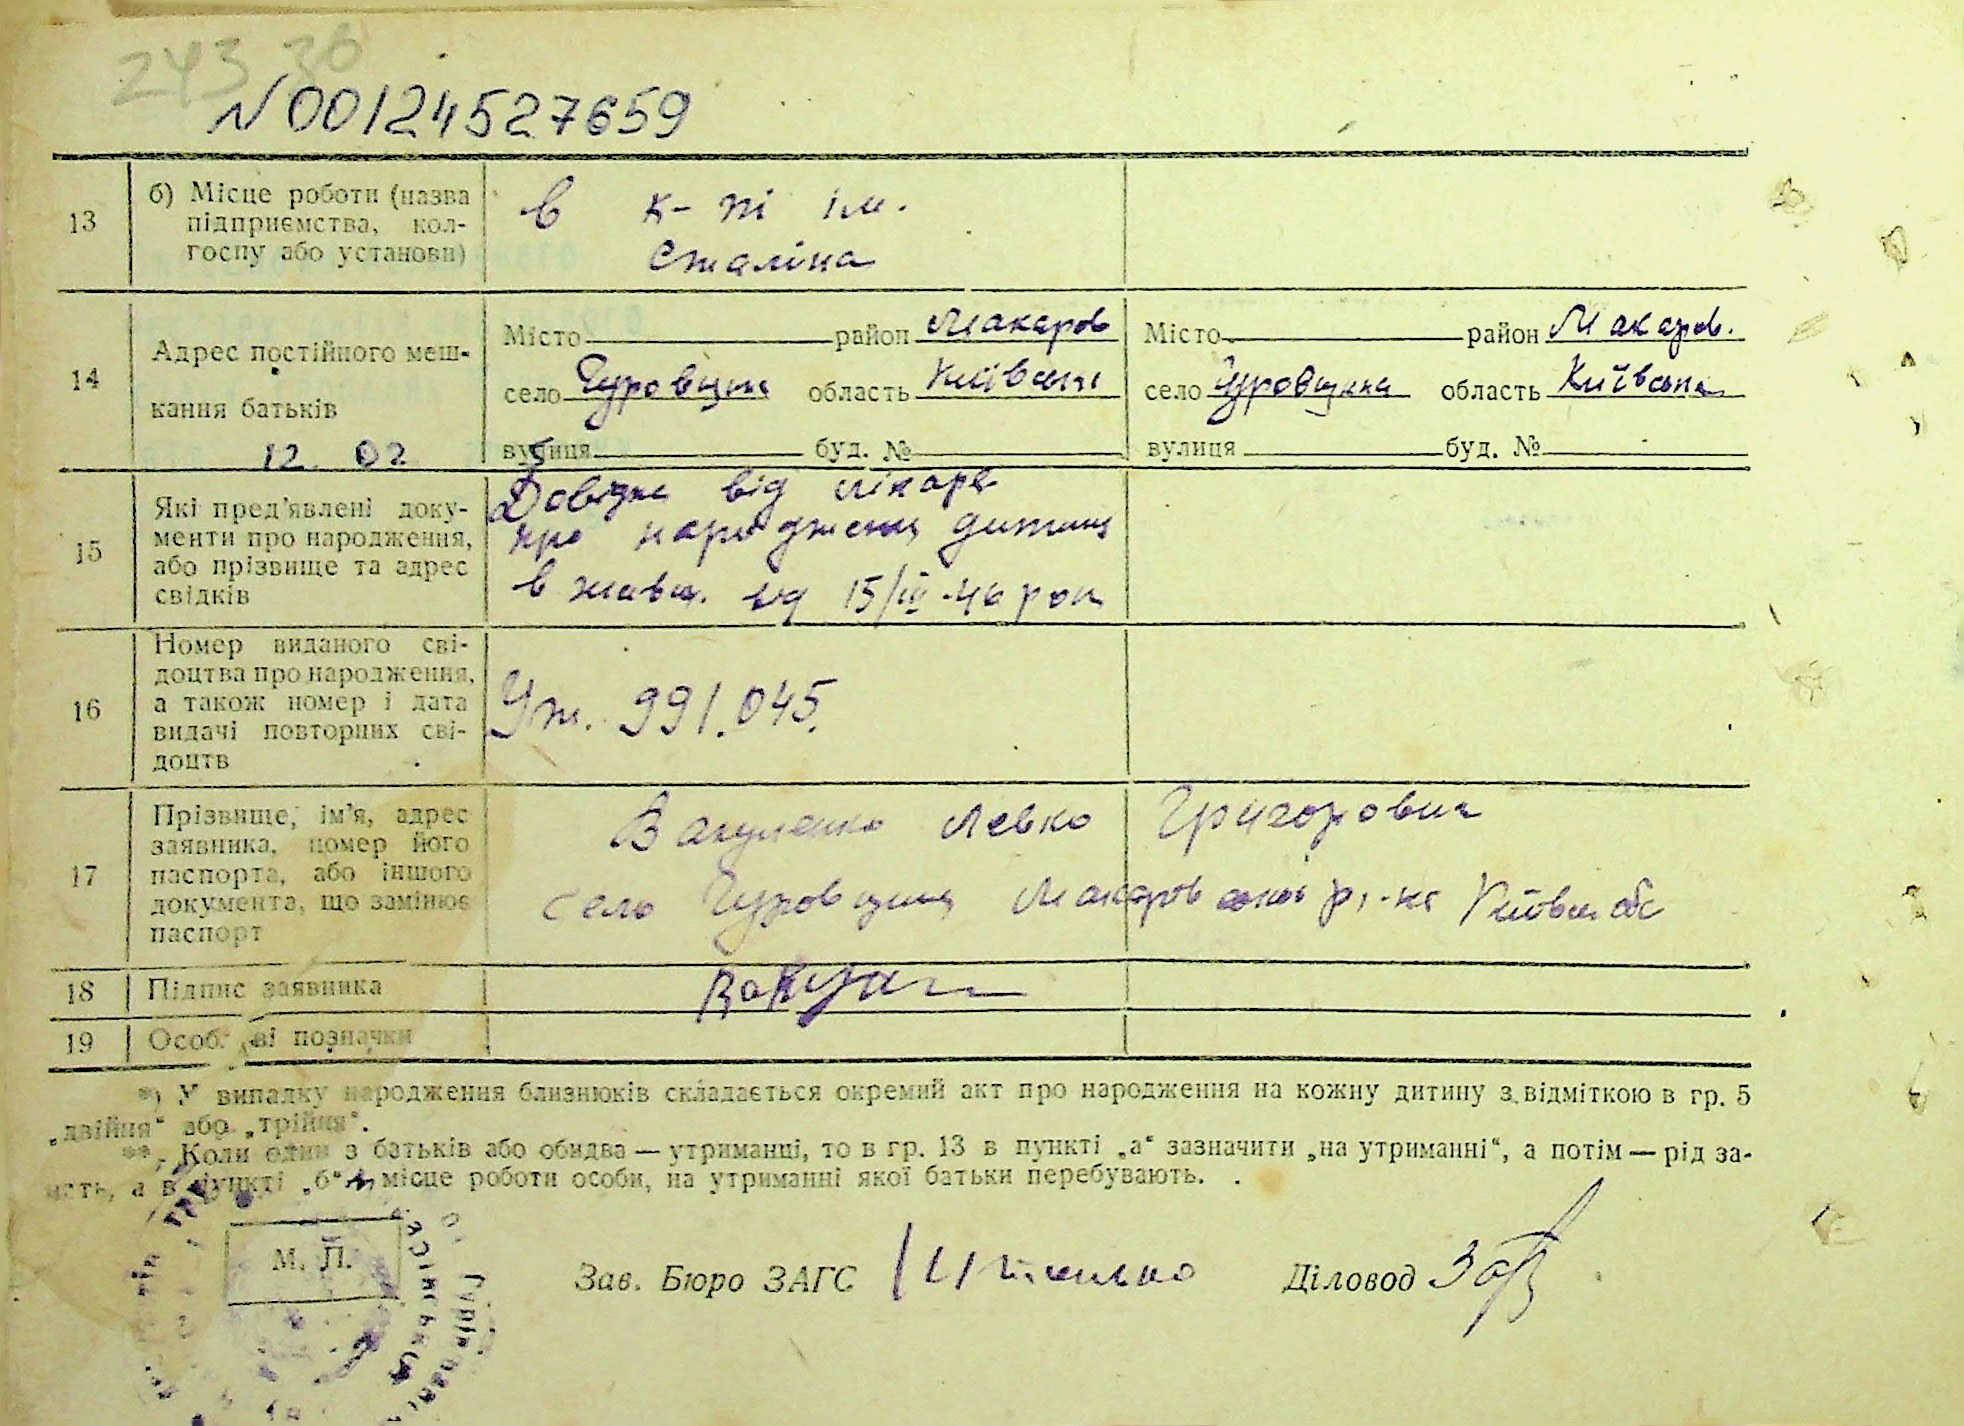 243 30
N00124527659
13 б) Місце роботи (назва підприємства, кол-
госпу або установи)
в к-пі ім.
Сталіна
14 Адрес постійного меш-
кання батьків
12 02
Місто район Макаров
село Чуровщина область Київська
вулиця буд. №
Місто район Макаров.
село Чуровщина область Київська
вулиця буд. №
15 Які пред'явлені доку-
менти про народження,
або прізвище та адрес
свідків
Довідка від лікаря
про народження дитини
від 15/III-46 рок
16 Номер виданого сві-
доцтва про народження,
а також номер і дата
видачі повторних сві-
доцтв
991.045.
17 Прізвище, ім'я, адрес
заявника, номер його
паспорта, або іншого
документа, що замінює
паспорт
Вакуленко Левко Григорович
село Чуровщина Макаров р-на
18 Підпис заявника
19 Особливі позначки
*) У випадку народження близнюків складається окремий акт про народження на кожну дитину з відміткою в гр. 5
„двійня“ або „трійня“.
**) Коли один з батьків або обидва — утриманці, то в гр. 13 в пункті „а“ зазначити „на утриманні“, а потім — рід за-
нять, а в пункті „б“ місце роботи особи, на утриманні якої батьки перебувають.
М. П.
Зав. Бюро ЗАГС
Діловод